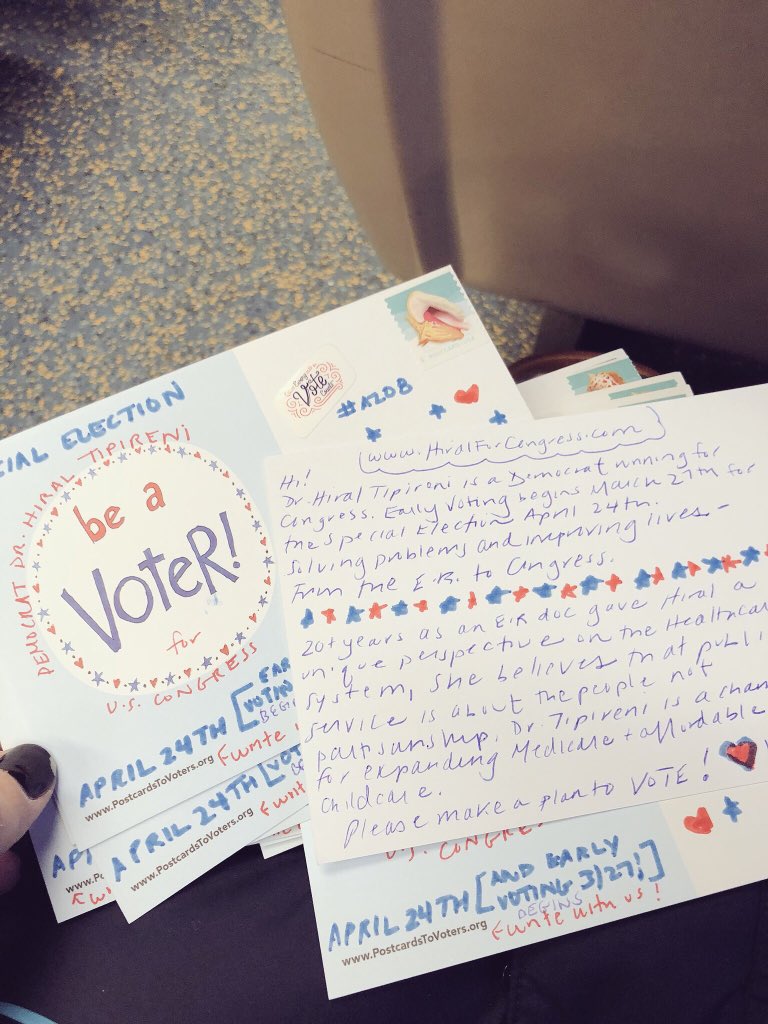 CIAL ELECTION
DEMOCRAT DR. HIRAL TIPIRENI
be a
VoteR!
for
U.S. CONGRESS
APRIL 24TH [
VOTING
BEGI
www.PostcardsToVoters.org
write
Vote
#AZ08
www.HiralForCongress.com
Hi!
Dr. Hiral Tipireni is a Democrat running for
Congress. Early Voting begins March 27th for
the special Election April 24th.
Solving problems and improving lives –
From the E.R. to Congress.
20+ years as an E.R doc gave Hiral a
unique perspective on the Healthcar
system, she believes that publi
service is about the people not
partisanship. Dr. Tipireni is a cham
for expanding Medicare + affordable
childcare.
Please make a plan to VOTE!
APRIL 24TH [VOT
www.PostcardsToVoters.org
writ
API
www.P
U.S. CONGRE
APRIL 24TH [AND EARLY
VOTING 3/27!]
BEGINS
www.PostcardsToVoters.org
write with us!